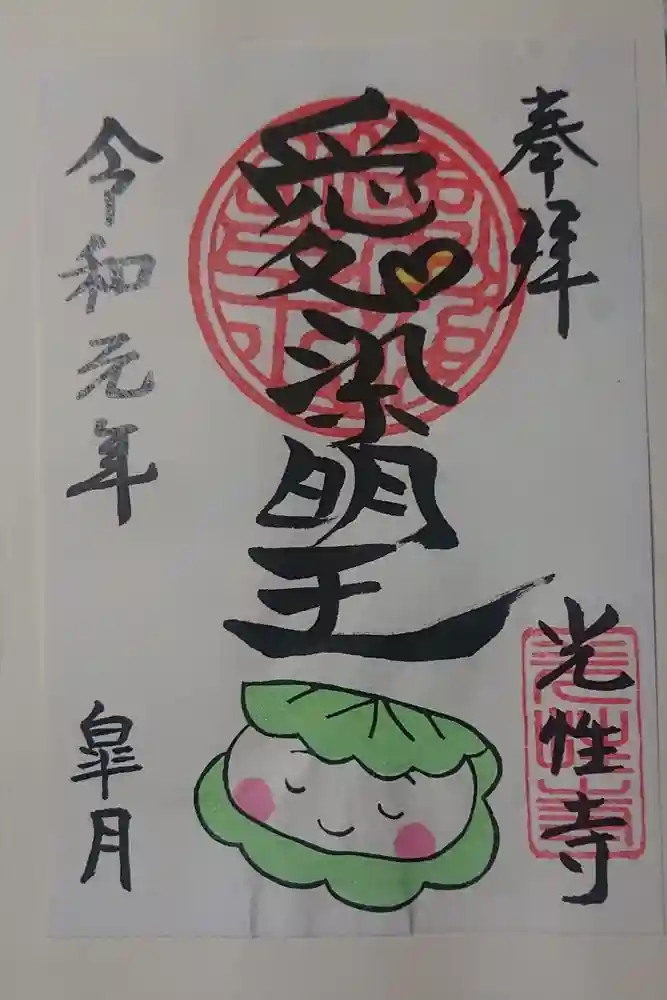 奉拝
愛染明王
光性寺
令和元年
皐月